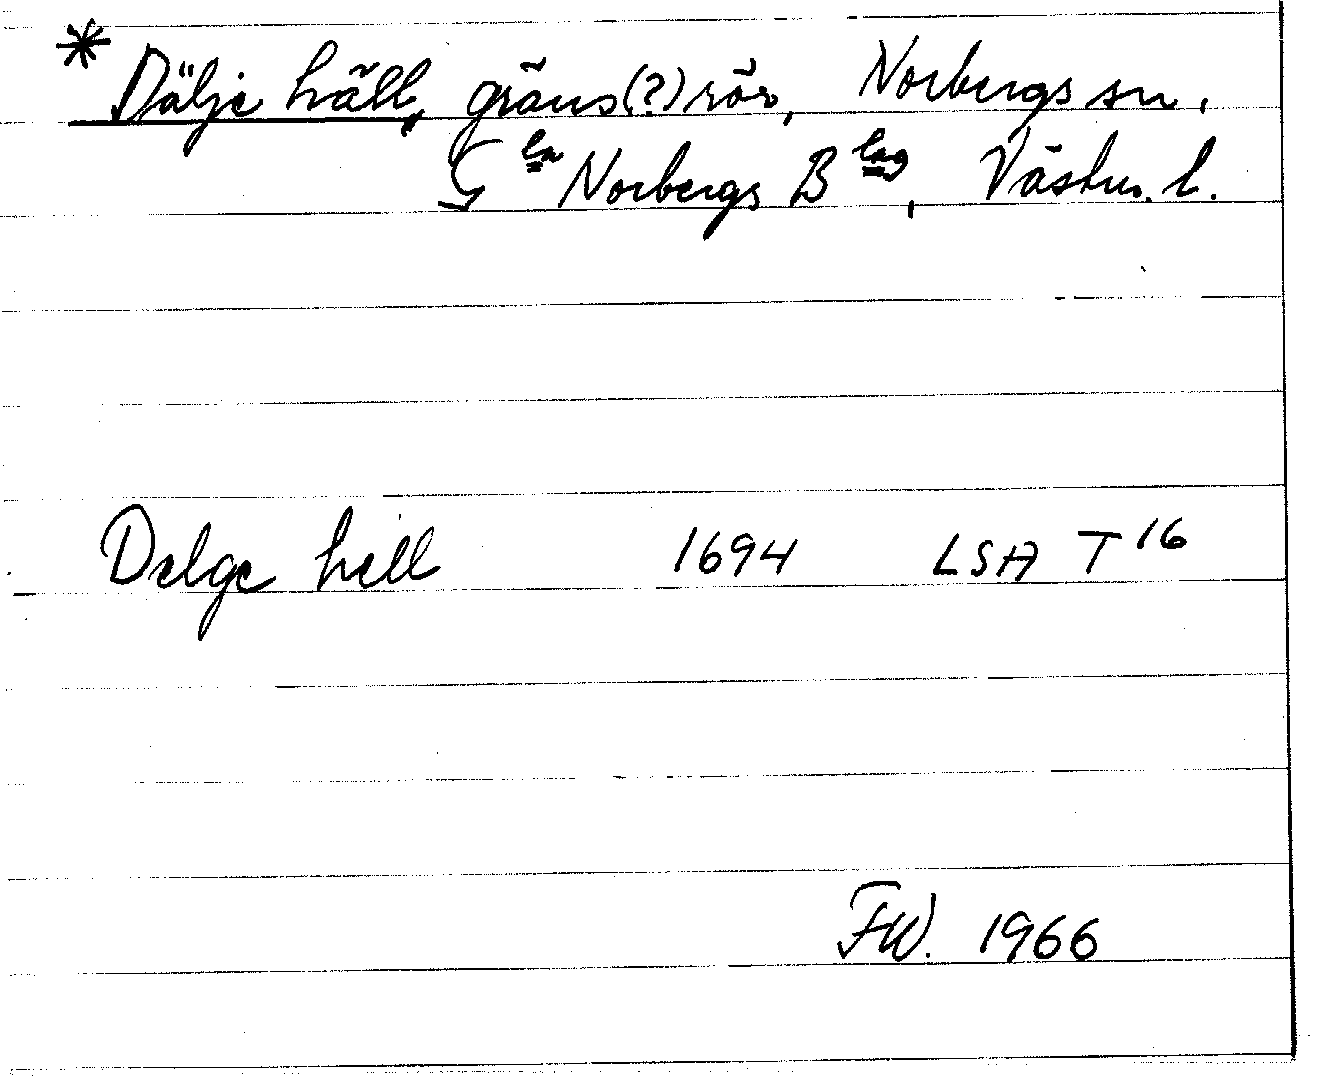 * Dälje häll, gräns(?)rör, Norbergs sn,
G^la Norbergs B^lag, Västm. l.
Delge hell 1694 LSA T^16
FW. 1966